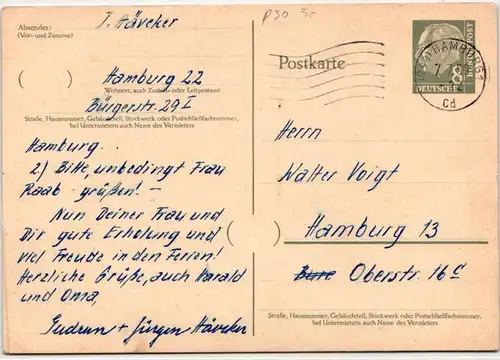 Absender:
(Vor- und Zuname)
J. Häveker
p 30
Postkarte
8
DEUTSCHE
BUNDESPOST
HAMBURG 1
cd
( )
Hamburg 22
Wohnort, auch Zustell- oder Leitpostamt
Bürgerstr. 29 I
Straße, Hausnummer, Gebäudeteil, Stockwerk oder Postschließfachnummer,
bei Untermietern auch Name des Vermieters
Hamburg.
2) Bitte, unbedingt Frau
Raab grüßen! –
Nun Deiner Frau und
Dir gute Erholung und
viel Freude in den Ferien!
Herzliche Grüße, auch Harald
und Oma
Gudrun + Jürgen Häveker
Herrn
Walter Voigt
( )
Hamburg 13
Oberstr. 16c
Straße, Hausnummer, Gebäudeteil, Stockwerk oder Postschließfachnummer,
bei Untermietern auch Name des Vermieters